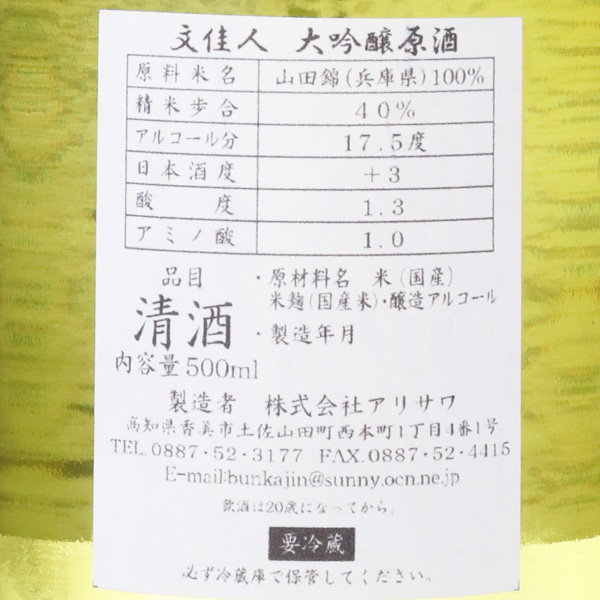 文佳人 大吟醸原酒
原料米名 山田錦(兵庫県)100%
精米歩合 40%
アルコール分 17.5度
日本酒度 +3
酸度 1.3
アミノ酸 1.0
品目 ・原材料名 米(国産)
米麹(国産米)・醸造アルコール
清酒 ・製造年月
内容量500ml
製造者 株式会社アリサワ
高知県香美市土佐山田町西本町1丁目4番1号
TEL.0887・52・3177 FAX.0887・52・4415
E-mail:bunkajin@sunny.ocn.ne.jp
飲酒は20歳になってから。
要冷蔵
必ず冷蔵庫で保管してください。